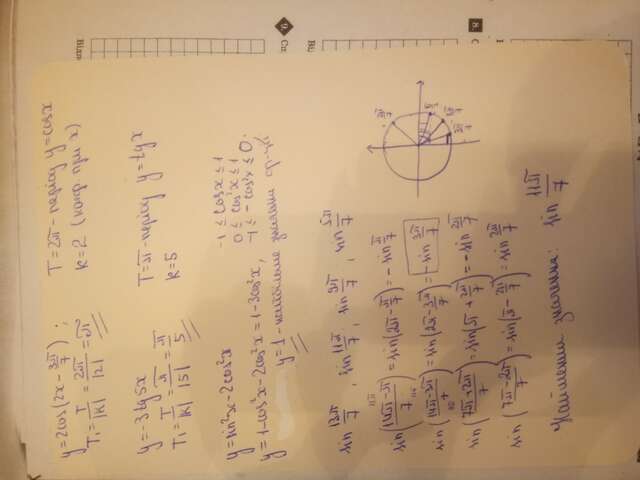 y=2cos(2x-3π/7);   T=2π-період y=cosx
T₁=T/|k|=2π/|2|=π   k=2 (коеф. при x)
y=-3tg5x   T=π-період y=tgx
T₁=T/|k|=π/|5|=π/5   k=5
y=sin²x-2cos²x   -1≤cosx≤1
0≤cos²x≤1
y=1-cos²x-2cos²x=1-3cos²x,   -1≤-cos²x≤0.
y=1-найбільше значення ф-ції
sin 13π/7, sin 11π/7, sin 9π/7, sin 5π/7
sin(14π-π/7)=sin(2π-π/7)=-sin π/7
sin(14π-3π/7)=sin(2π-3π/7)=-sin 3π/7
sin(7π+2π/7)=sin(π+2π/7)=-sin 2π/7
sin(7π-2π/7)=sin(π-2π/7)=sin 2π/7
Найменше значення: sin 11π/7
9.
8.